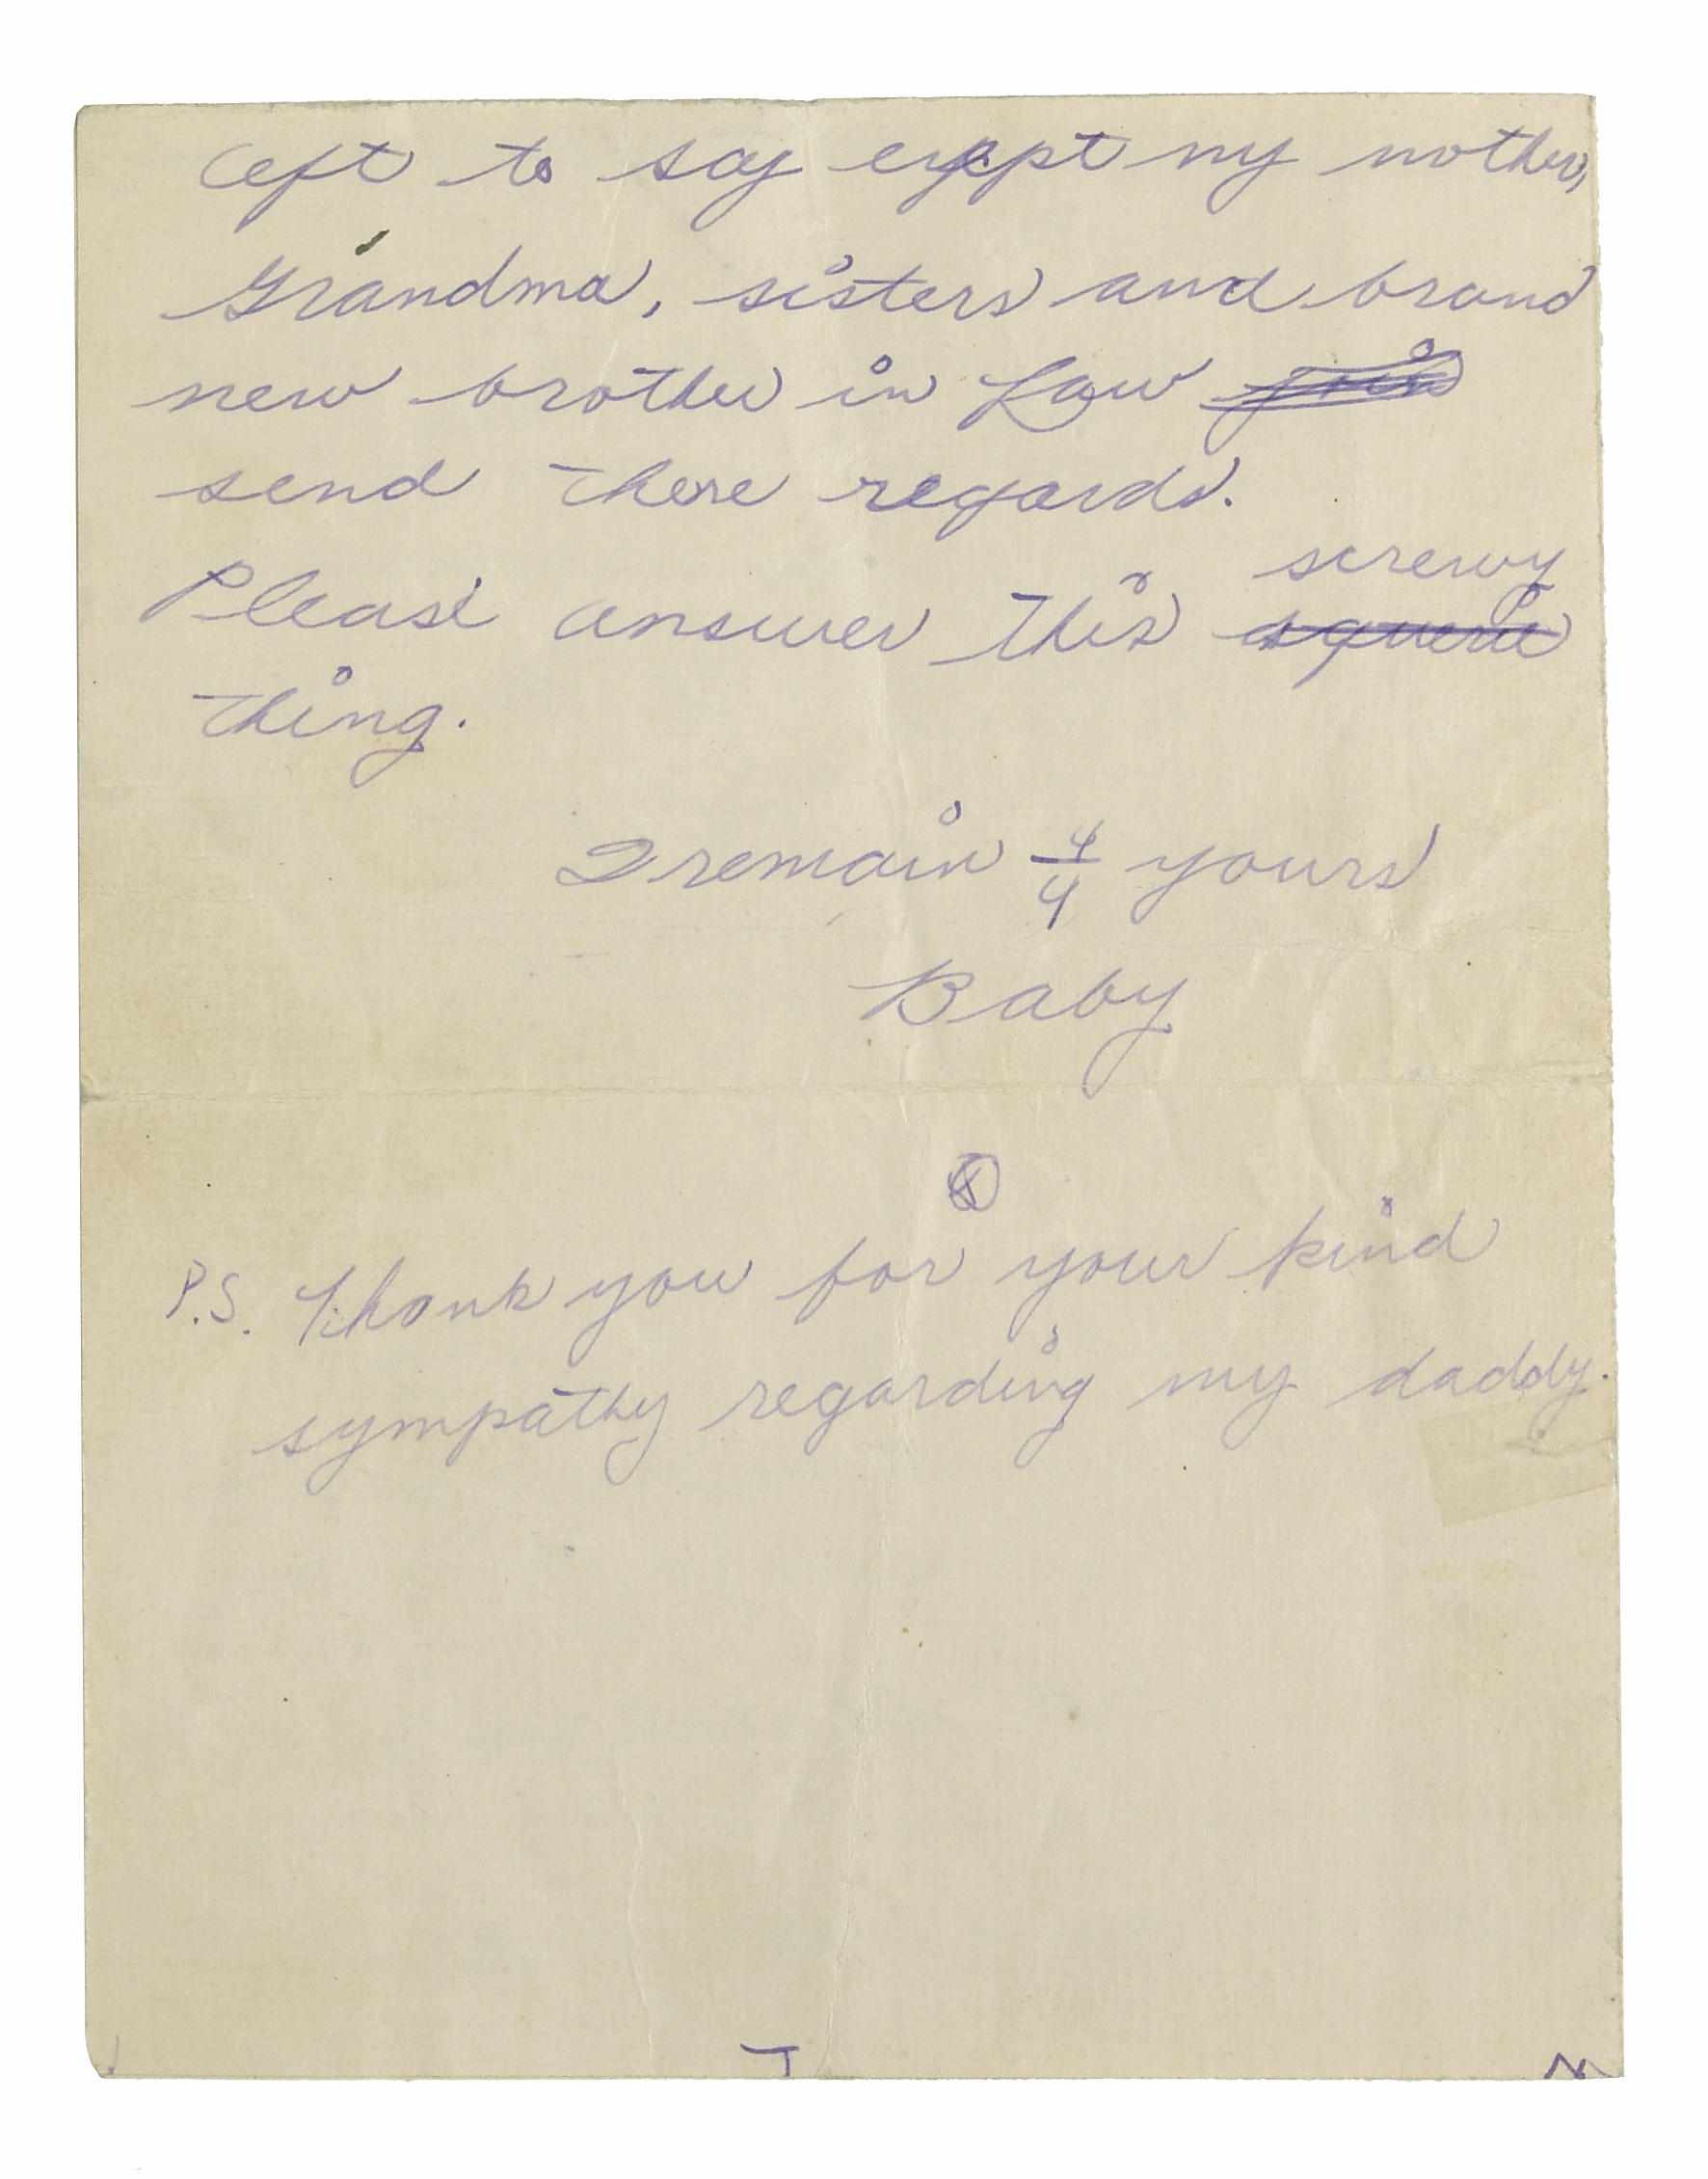 left to say exept my mother,
Grandma, sisters and brand
new brother in Law
send there regards.
Please answer this screwy
thing.
I remain 4/4 yours
Baby
P.S. Thank you for your kind
sympathy regarding my daddy.